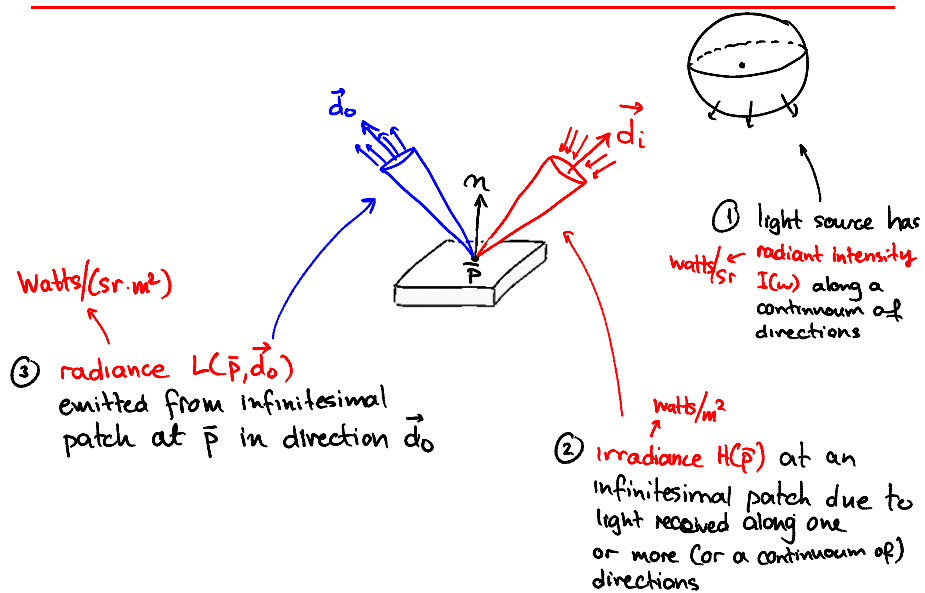 d₀
dᵢ
n
p̄
① light source has
watts/sr ← radiant intensity
I(ω) along a
continuum of
directions
Watts/(sr·m²)
③ radiance L(p̄, d₀)
emitted from infinitesimal
patch at p̄ in direction d₀
watts/m²
② irradiance H(p̄) at an
infinitesimal patch due to
light received along one
or more (or a continuum of)
directions